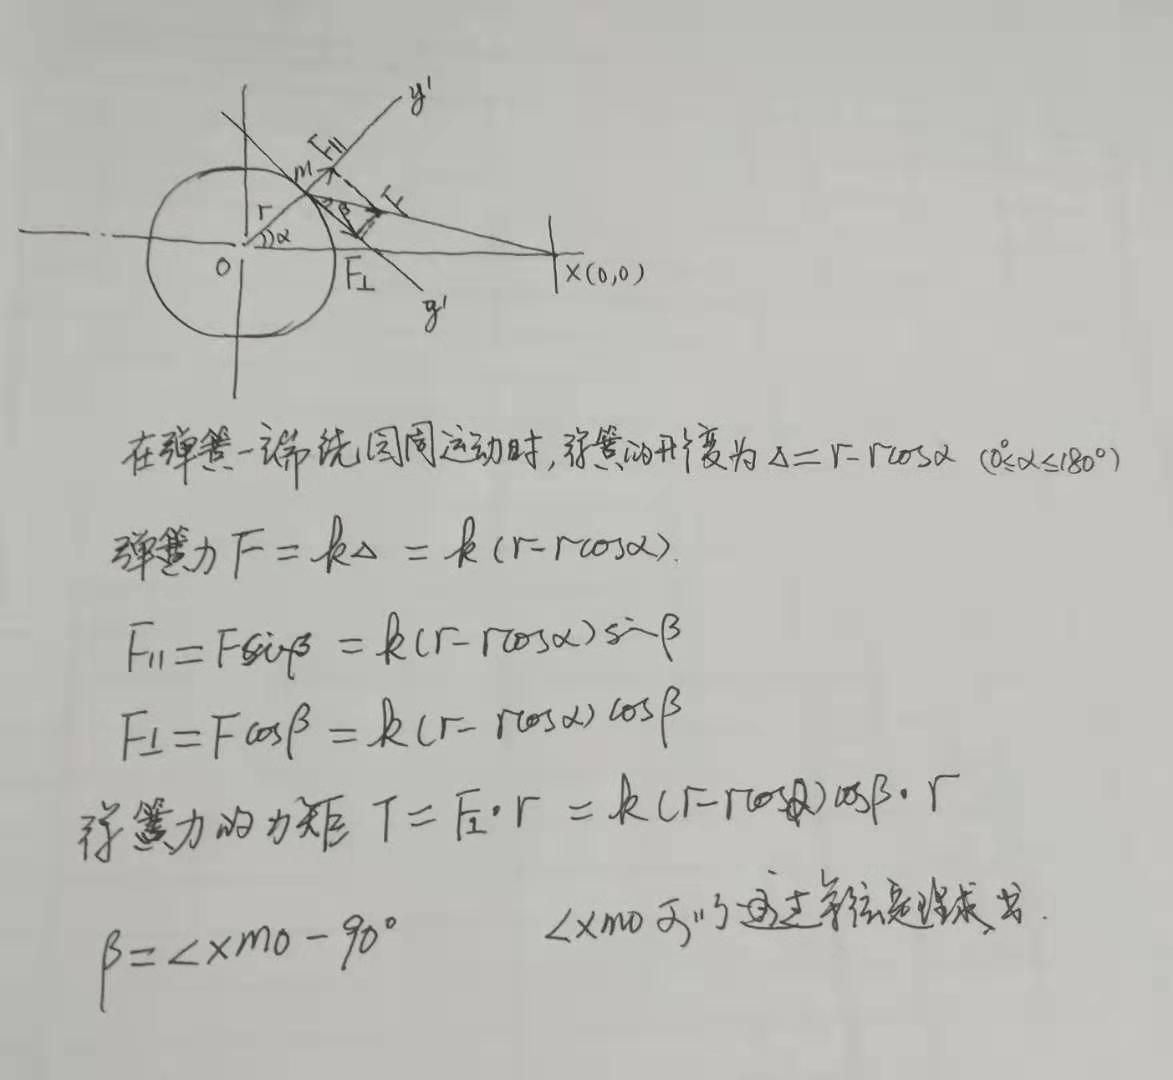 y'
F∥
M
F
β
r
α
O
F⊥
X(0,0)
y'
在弹簧一端绕圆周运动时,弹簧的形变为 Δ=r-rcosα (0°≤α≤180°)
弹簧力 F=kΔ=k(r-rcosα).
F∥=Fsinβ=k(r-rcosα)sinβ
F⊥=Fcosβ=k(r-rcosα)cosβ
弹簧力的力矩 T=F⊥·r=k(r-rcosα)cosβ·r
β=∠XMO-90° ∠XMO可以通过余弦定理求出.